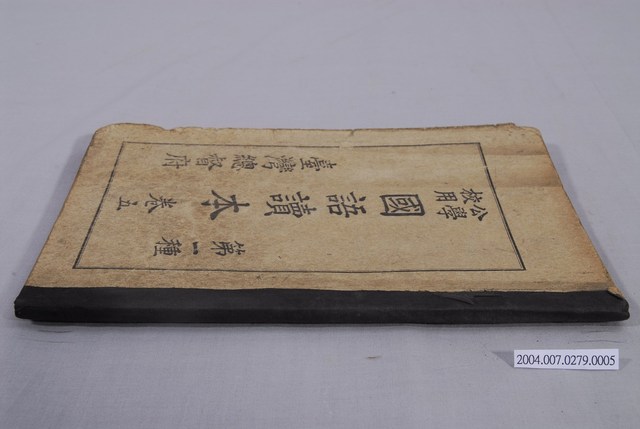 公學校用
國語讀本 卷五
第一種
臺灣總督府
2004.007.0279.0005